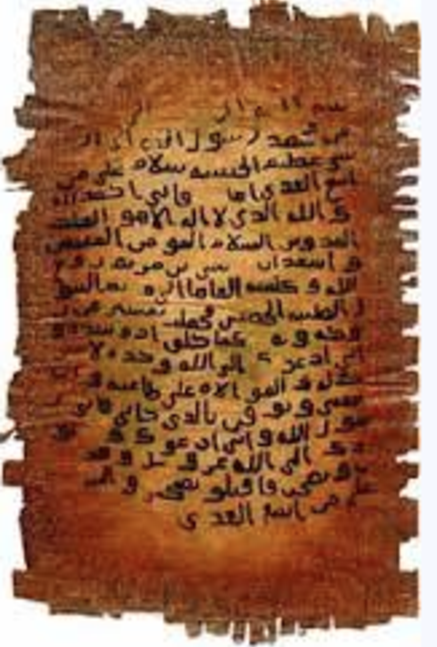 بسم الله الر
من محمد رسول الله الى ال
شي عظيم الحبشه سلام على من
اتبع الهدى اما فاني احمد اليك
الله الذي لا اله الا هو الملك
القدوس السلام المومن المهيمن
و اشهد ان عيسى بن مريم روح
الله و كلمته القاها الى مريم البتو
ل الطيبه الحصينه فحملت بعيسى من ر
وحه و كما خلق ادم بيده و
اني ادعوك الى الله وحده لا
شريك له و الموالاه على طاعته و
تتبعني و توقن بالذي جاني فاني ر
سول الله و اني ادعوك و
دك الى الله عز و جل و قد
و نصحت فاقبلو نصيحتي و السلا
م على من اتبع الهدى